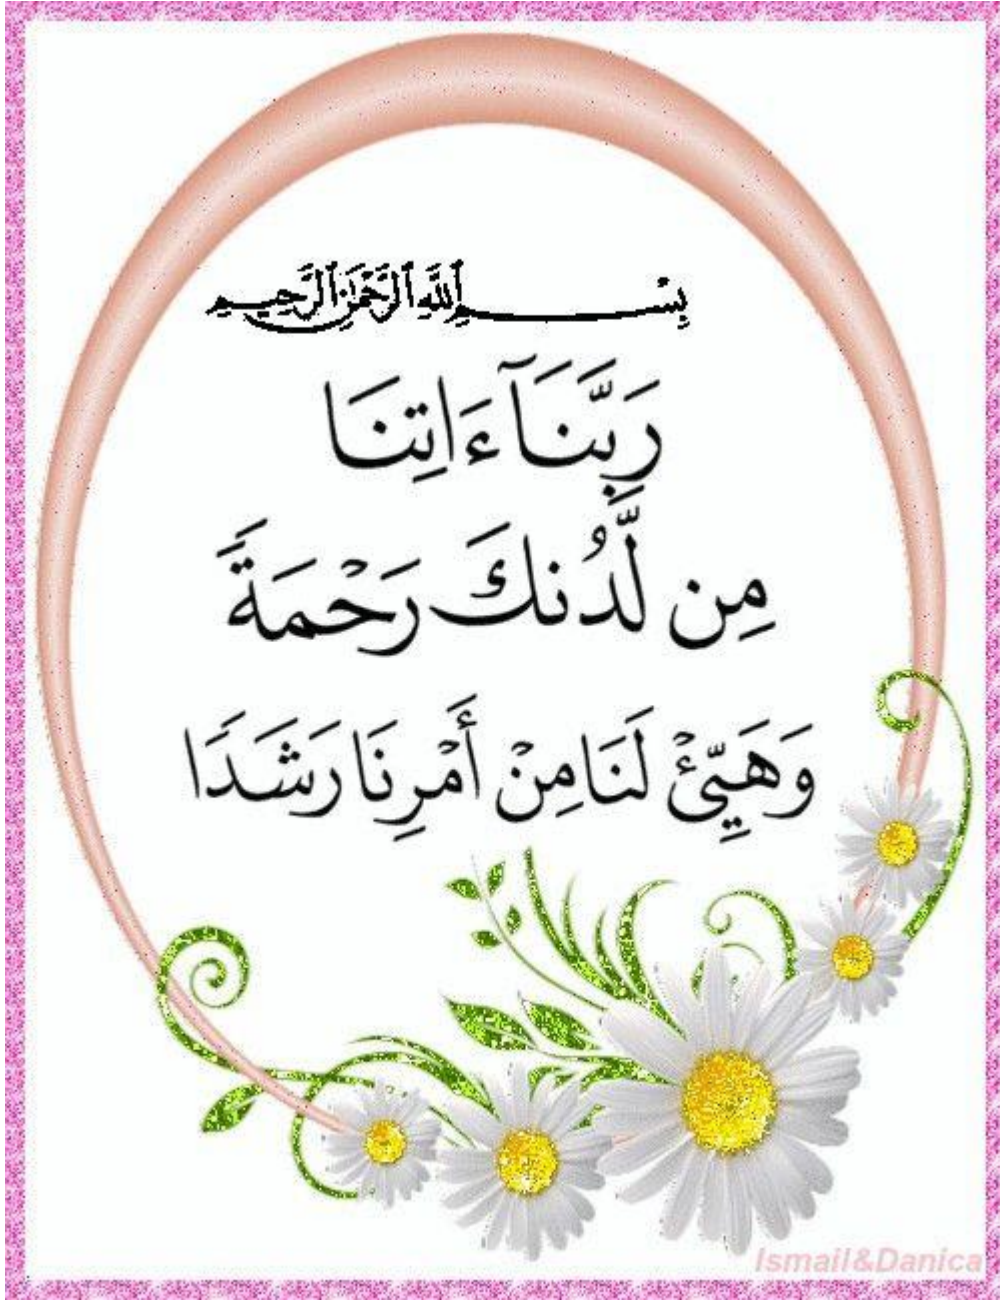 بِسْمِ ٱللَّهِ ٱلرَّحْمَٰنِ ٱلرَّحِيمِ
رَبَّنَآ ءَاتِنَا
مِن لَّدُنكَ رَحْمَةً
وَهَيِّئْ لَنَا مِنْ أَمْرِنَا رَشَدًا
Ismail&Danica